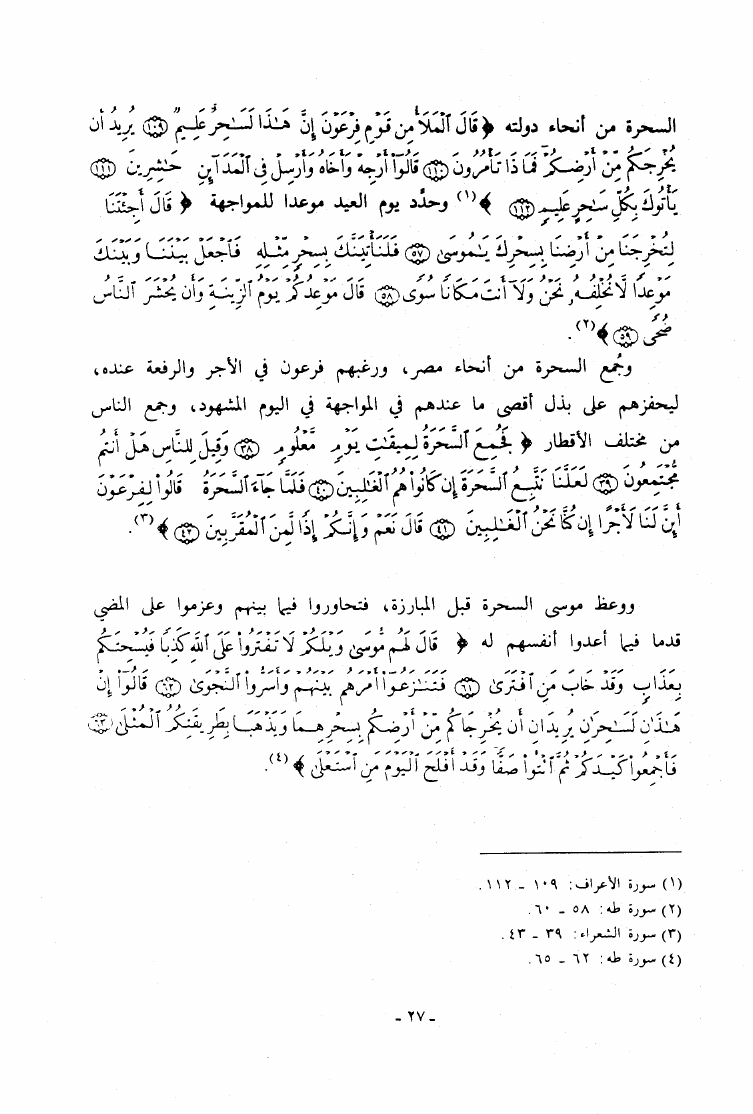 السحرة من أنحاء دولته ﴿ قَالَ ٱلْمَلَأُ مِن قَوْمِ فِرْعَوْنَ إِنَّ هَـٰذَا لَسَـٰحِرٌ عَلِيمٌ ﴿١٠٩﴾ يُرِيدُ أَن
يُخْرِجَكُم مِّنْ أَرْضِكُمْ فَمَاذَا تَأْمُرُونَ ﴿١١٠﴾ قَالُوٓا۟ أَرْجِهْ وَأَخَاهُ وَأَرْسِلْ فِى ٱلْمَدَآئِنِ حَـٰشِرِينَ ﴿١١١﴾
يَأْتُوكَ بِكُلِّ سَـٰحِرٍ عَلِيمٍ ﴿١١٢﴾ ﴾(١) وحدّد يوم العيد موعدا للمواجهة ﴿ قَالَ أَجِئْتَنَا
لِتُخْرِجَنَا مِنْ أَرْضِنَا بِسِحْرِكَ يَـٰمُوسَىٰ ﴿٥٧﴾ فَلَنَأْتِيَنَّكَ بِسِحْرٍ مِّثْلِهِۦ فَٱجْعَلْ بَيْنَنَا وَبَيْنَكَ
مَوْعِدًا لَّا نُخْلِفُهُۥ نَحْنُ وَلَآ أَنتَ مَكَانًا سُوًى ﴿٥٨﴾ قَالَ مَوْعِدُكُمْ يَوْمُ ٱلزِّينَةِ وَأَن يُحْشَرَ ٱلنَّاسُ
ضُحًى ﴿٥٩﴾ ﴾(٢).
وجُمع السحرة من أنحاء مصر، ورغبهم فرعون في الأجر والرفعة عنده،
ليحفزهم على بذل أقصى ما عندهم في المواجهة في اليوم المشهود، وجمع الناس
من مختلف الأقطار ﴿ فَجُمِعَ ٱلسَّحَرَةُ لِمِيقَـٰتِ يَوْمٍ مَّعْلُومٍ ﴿٣٨﴾ وَقِيلَ لِلنَّاسِ هَلْ أَنتُم
مُّجْتَمِعُونَ ﴿٣٩﴾ لَعَلَّنَا نَتَّبِعُ ٱلسَّحَرَةَ إِن كَانُوا۟ هُمُ ٱلْغَـٰلِبِينَ ﴿٤٠﴾ فَلَمَّا جَآءَ ٱلسَّحَرَةُ قَالُوا۟ لِفِرْعَوْنَ
أَئِنَّ لَنَا لَأَجْرًا إِن كُنَّا نَحْنُ ٱلْغَـٰلِبِينَ ﴿٤١﴾ قَالَ نَعَمْ وَإِنَّكُمْ إِذًا لَّمِنَ ٱلْمُقَرَّبِينَ ﴿٤٢﴾ ﴾(٣).
ووعظ موسى السحرة قبل المبارزة، فتحاوروا فيما بينهم وعزموا على المضي
قدما فيما أعدوا أنفسهم له ﴿ قَالَ لَهُم مُّوسَىٰ وَيْلَكُمْ لَا تَفْتَرُوا۟ عَلَى ٱللَّهِ كَذِبًا فَيُسْحِتَكُم
بِعَذَابٍ وَقَدْ خَابَ مَنِ ٱفْتَرَىٰ ﴿٦١﴾ فَتَنَـٰزَعُوٓا۟ أَمْرَهُم بَيْنَهُمْ وَأَسَرُّوا۟ ٱلنَّجْوَىٰ ﴿٦٢﴾ قَالُوٓا۟ إِنْ
هَـٰذَٰنِ لَسَـٰحِرَٰنِ يُرِيدَانِ أَن يُخْرِجَاكُم مِّنْ أَرْضِكُم بِسِحْرِهِمَا وَيَذْهَبَا بِطَرِيقَتِكُمُ ٱلْمُثْلَىٰ ﴿٦٣﴾
فَأَجْمِعُوا۟ كَيْدَكُمْ ثُمَّ ٱئْتُوا۟ صَفًّا وَقَدْ أَفْلَحَ ٱلْيَوْمَ مَنِ ٱسْتَعْلَىٰ ﴾(٤).
(١) سورة الأعراف: ١٠٩ ـ ١١٢.
(٢) سورة طه: ٥٨ ـ ٦٠.
(٣) سورة الشعراء: ٣٩ ـ ٤٣.
(٤) سورة طه: ٦٢ ـ ٦٥.
ـ ٢٧ ـ